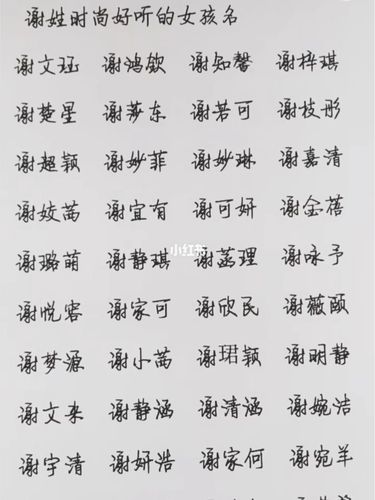 谢姓时尚好听的女孩名
谢文珏 谢鸿钦 谢知馨 谢梓琪
谢楚星 谢莎东 谢若可 谢枝彤
谢超颖 谢妙菲 谢妙琳 谢嘉清
谢姣茵 谢宜有 谢可妍 谢金蓓
谢璐萌 谢静琪 谢荔理 谢咏予
谢悦容 谢家可 谢欣民 谢薇颐
谢梦源 谢小茵 谢珺颖 谢明静
谢文来 谢静涵 谢清涵 谢婉洁
谢宇清 谢妍浩 谢家何 谢宛羊
小红书